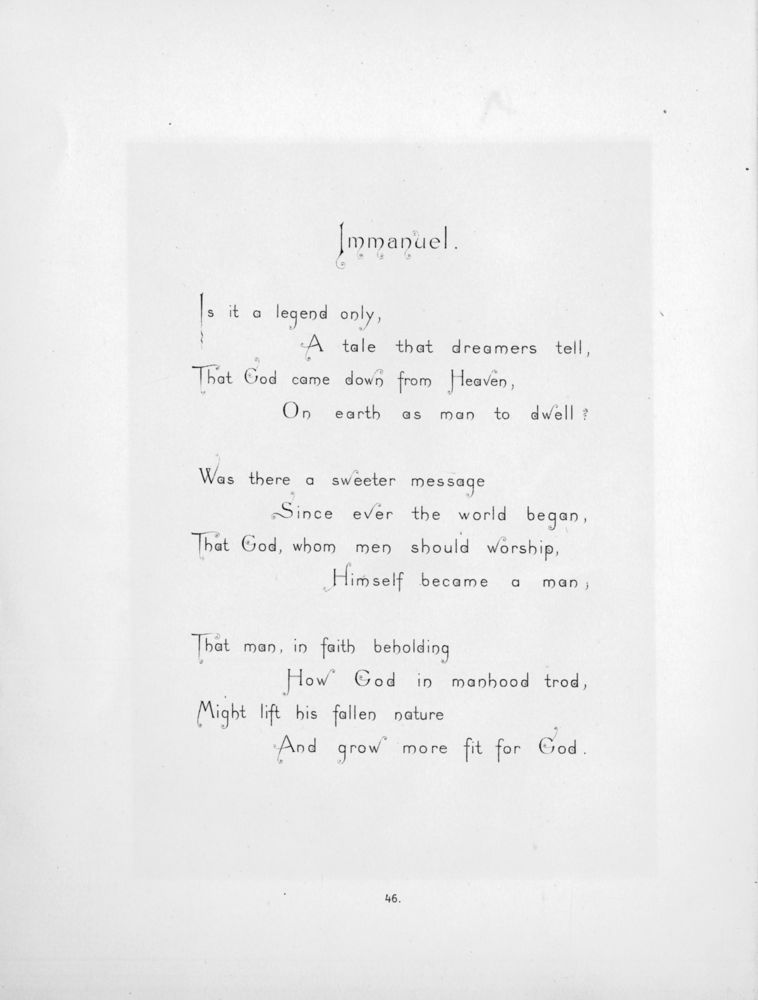 Immanuel.
Is it a legend only,
A tale that dreamers tell,
That God came down from Heaven,
On earth as man to dwell?
Was there a sweeter message
Since ever the world began,
That God, whom men should worship,
Himself became a man;
That man, in faith beholding
How God in manhood trod,
Might lift his fallen nature
And grow more fit for God.
46.